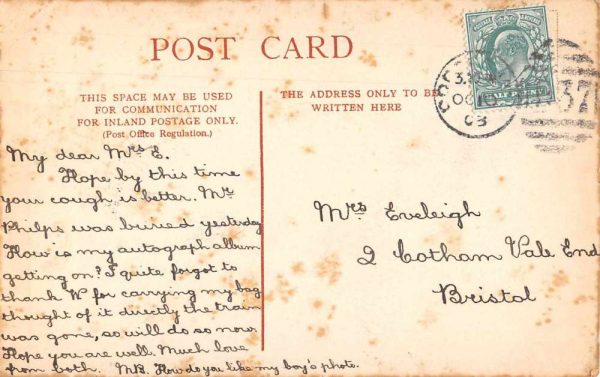 POST CARD
THIS SPACE MAY BE USED
FOR COMMUNICATION
FOR INLAND POSTAGE ONLY.
(Post Office Regulation.)
THE ADDRESS ONLY TO BE
WRITTEN HERE
My dear Mrs E.
Hope by this time
your cough is better. Mr
Philps was buried yesterday
How is my autograph album
getting on? I quite forgot to
thank W for carrying my bag
thought of it directly the train
was gone, so will do so now
Hope you are well. Much love
from both. MB. How do you like my boy's photo.
Mrs Eveleigh
2 Cotham Vale End
Bristol
HALFPENNY
OC
03
37